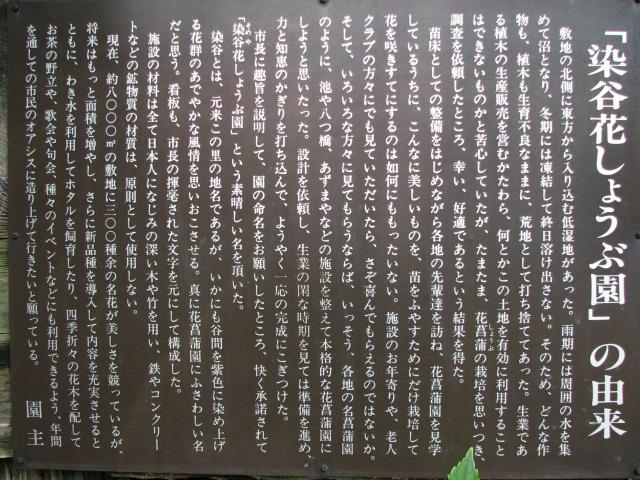 「染谷花しょうぶ園」の由来
敷地の北側に東方から入り込む低湿地があった。雨期には周囲の水を集
めて沼となり、冬期には凍結して終日溶け出さない。そのため、どんな作
物も、植木も生育不良なままに、荒地として打ち捨ててあった。生業であ
る植木の生産販売を営むかたわら、何とかこの土地を有効に利用すること
はできないものかと苦心していたが、たまたま、花菖蒲の栽培を思いつき、
しょうぶ
調査を依頼したところ、幸い、好適であるという結果を得た。
苗床としての整備をはじめながら各地の先輩達を訪ね、花菖蒲園を見学
しているうちに、こんなに美しいものを、苗をふやすためにだけ栽培して
花を咲きすてにするのは如何にももったいない。施設のお年寄りや、老人
クラブの方々にでも見ていただいたら、さぞ喜んでもらえるのではないか。
そして、いろいろな方々に見てもらうならば、いっそう、各地の名菖蒲園
のように、池や八つ橋、あずまやなどの施設を整えて本格的な花菖蒲園に
しようと思いたった。設計を依頼し、生業の閑な時期を見ては準備を進め、
力と知恵のかぎりを打ち込んで、ようやく一応の完成にこぎつけた。
市長に趣旨を説明して、園の命名をお願いしたところ、快く承諾されて
「染谷花しょうぶ園」という素晴しい名を頂いた。
そめや
染谷とは、元来この里の地名であるが、いかにも谷間を紫色に染め上げ
る花群のあでやかな風情を思いおこさせる。真に花菖蒲園にふさわしい名
だと思う。看板も、市長の揮毫された文字を元にして構成した。
施設の材料は全て日本人になじみの深い木や竹を用い、鉄やコンクリー
トなどの鉱物質の材質は、原則として使用しない。
現在、約八〇〇〇㎡の敷地に三〇〇種余の名花が美しさを競っているが、
将来はもっと面積を増やし、さらに新品種を導入して内容を充実させると
ともに、わき水を利用してホタルを飼育したり、四季折々の花木を配して
お茶の野立や、歌会や句会、種々のイベントなどにも利用できるよう、年間
を通しての市民のオアシスに造り上げて行きたいと願っている。
園主